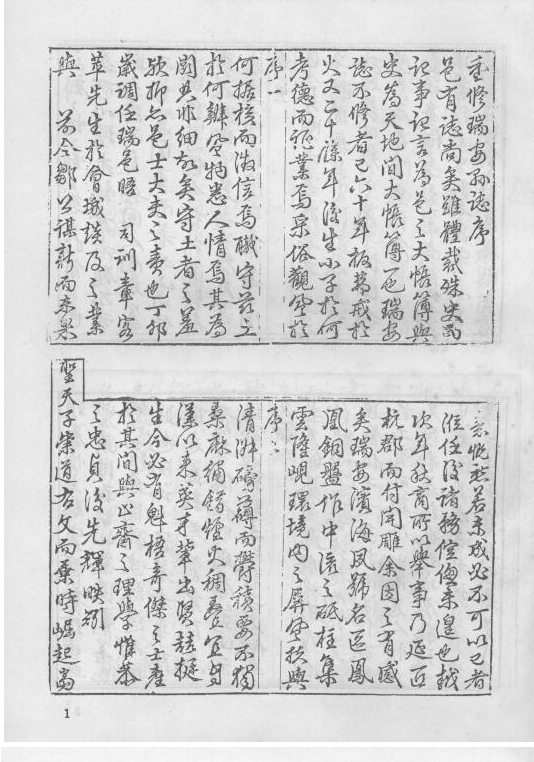 重修瑞安縣誌序
邑有誌尚矣雖體裁殊史而
記事記言為邑之大帳簿與
史為天地間大帳簿一也瑞安
誌不修者已六十年板籍戒於
火又二十餘年後生小子於何
考德而繹業焉采俗觀風於
序一
何据核而徵信焉職守茲土
於何辦官物悉人情焉其為
闕典非細故矣守土者之羞
歟抑亦邑士大夫之責也丁卯
歲調任瑞邑晤 司訓章客
草先生於會城談及之業
與 前令鄒公謀新而未果
意怃然若未成必不可以已者
涖任後諸務倥偬未遑也越
次年秋商所以舉事乃延匠
杭郡而付開雕余因之有感
矣瑞安濱海夙號名區鳳
凰銅盤作中流之砥柱集
雲隆峴環境內之屏風扶輿
序二
清淑磅礴而鬱積要不獨
桑麻綉錯煙火稠疊宜自
漢以來英才輩出賢喆挺
生今必有魁梧奇傑之士產
於其間與止齋之理學惟恭
之忠貞後先輝映矧
聖天子崇道右文而乘時崛起為
1